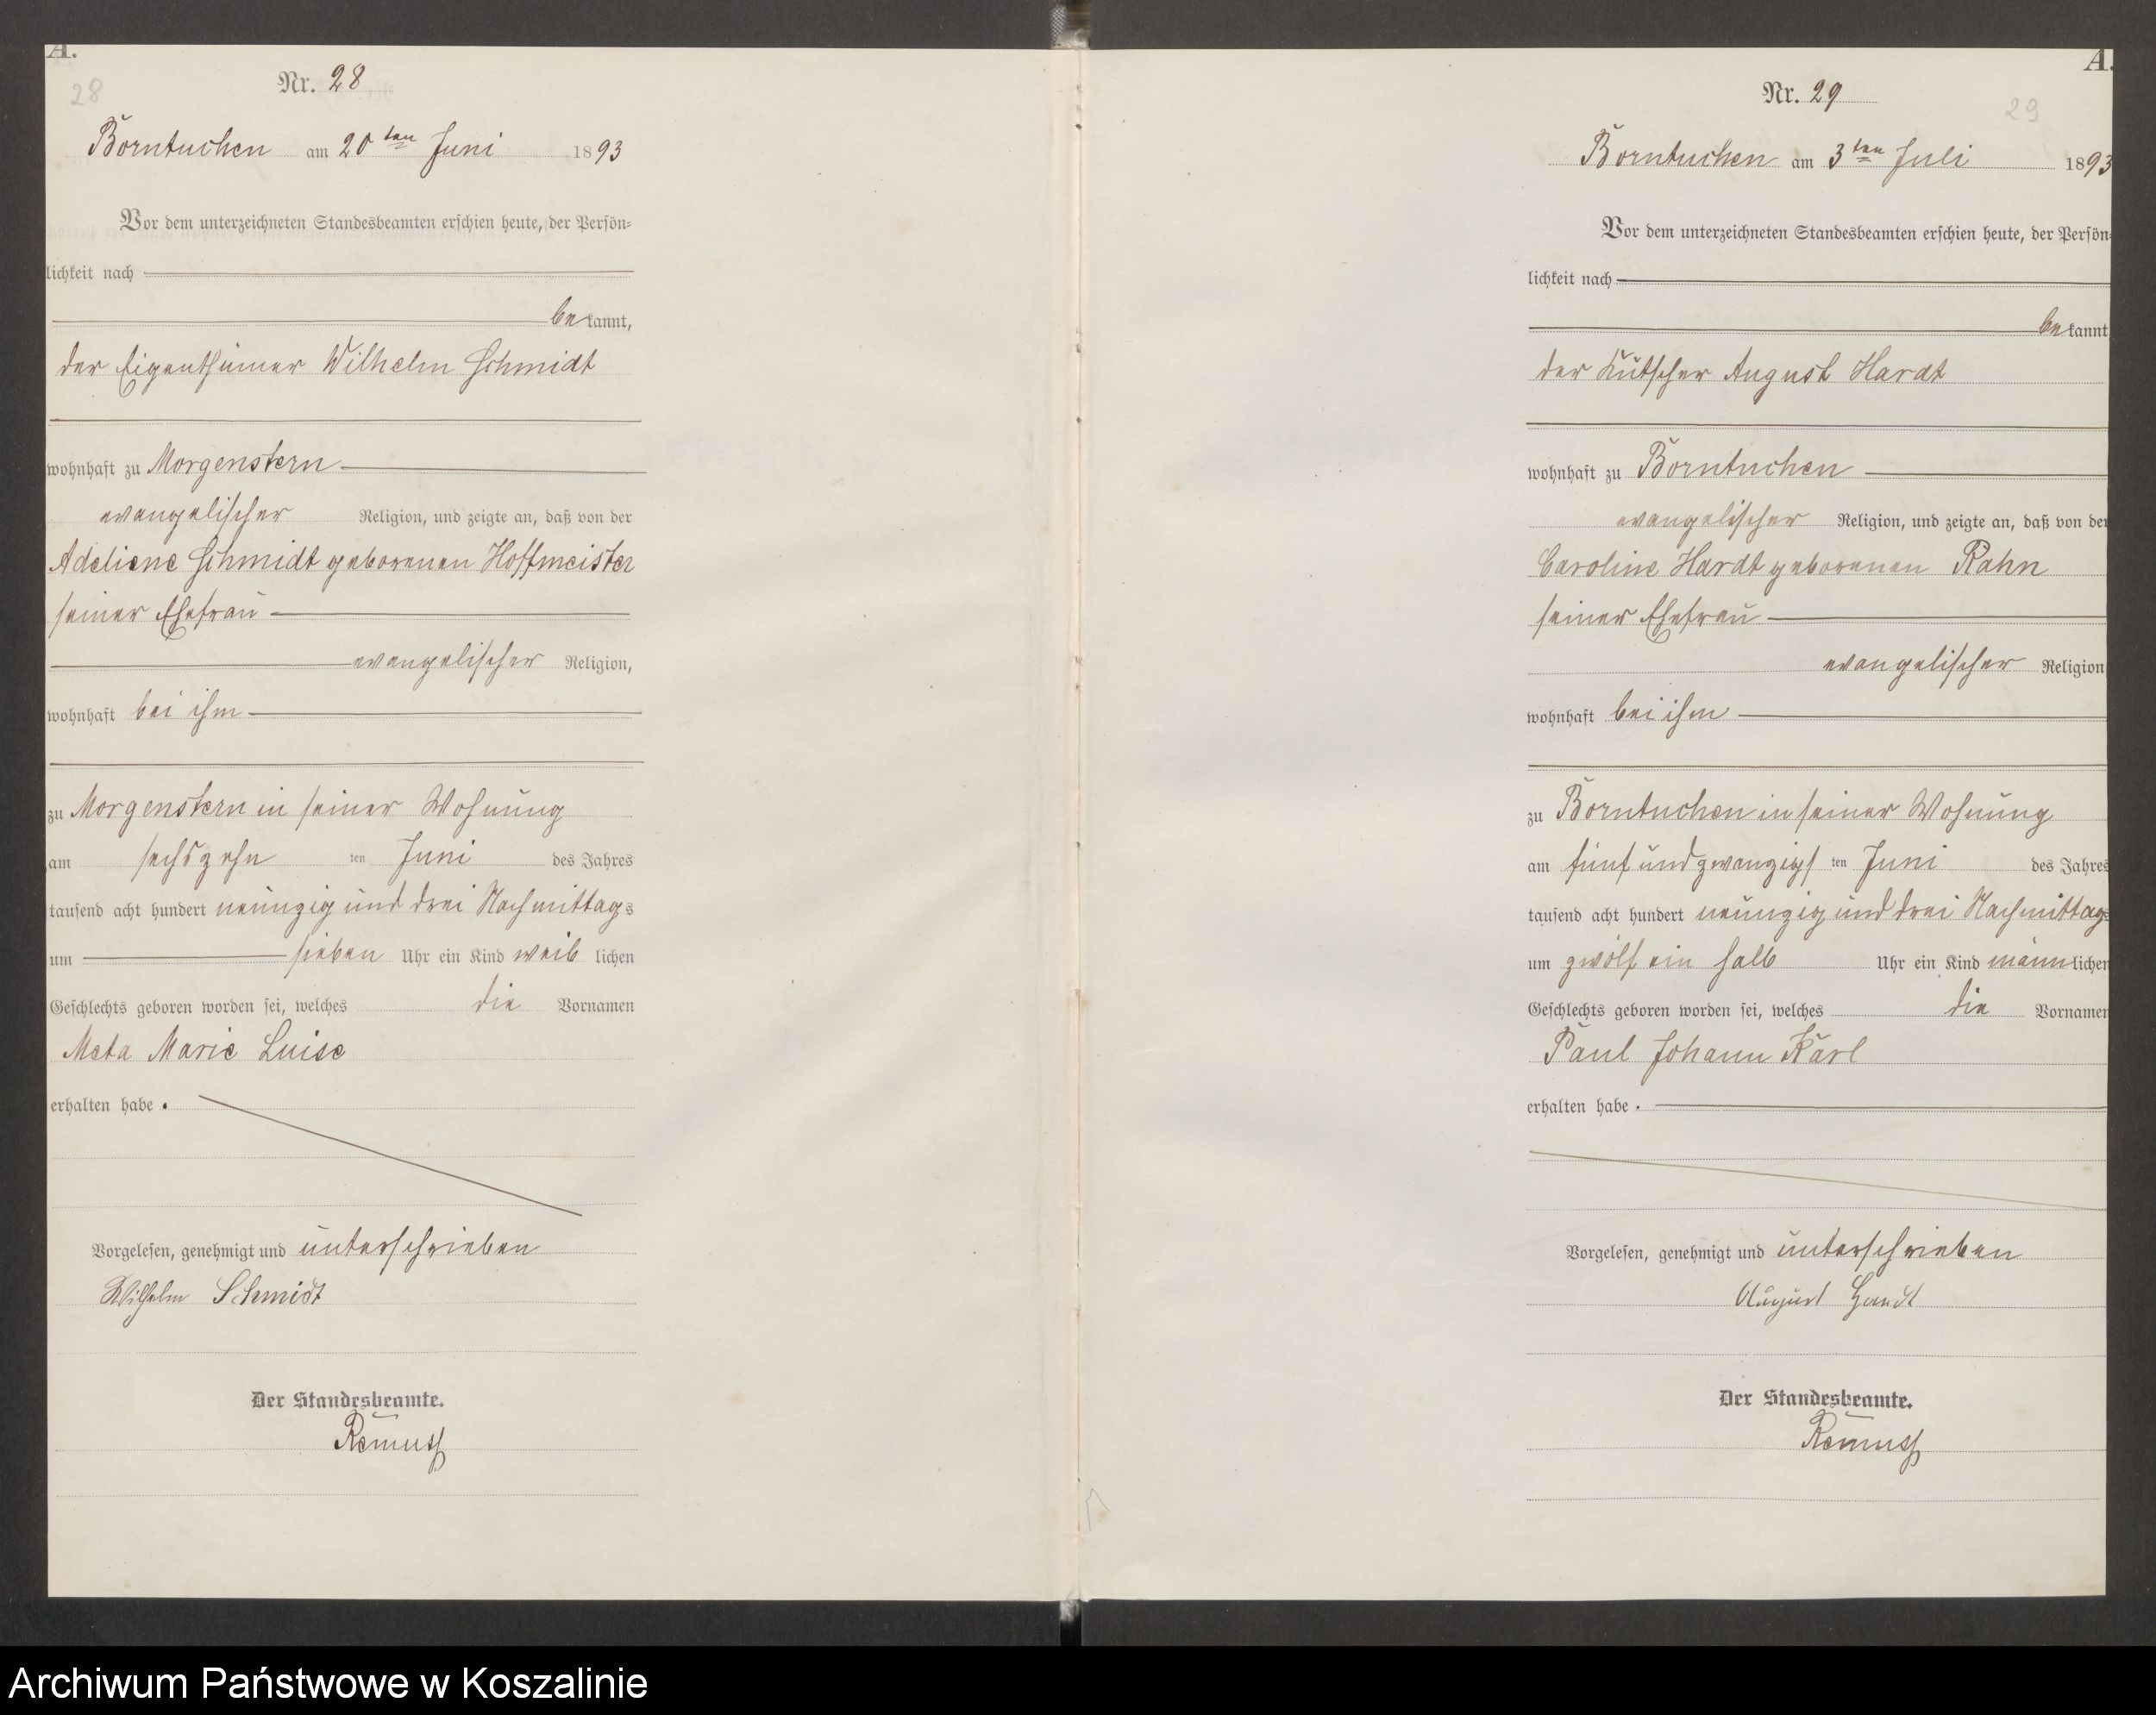 A.
28
Nr. 28
Borntuchen am 20ten Juni 1893
Vor dem unterzeichneten Standesbeamten erschien heute, der Persön-
lichkeit nach
bekannt,
der Eigenthümer Wilhelm Schmidt
wohnhaft zu Morgenstern
evangelischer Religion, und zeigte an, daß von der
Adeliene Schmidt geborenen Hoffmeister
seiner Ehefrau
evangelischer Religion,
wohnhaft bei ihm
zu Morgenstern in seiner Wohnung
am sechszehn ten Juni des Jahres
tausend acht hundert neunzig und drei Nachmittags
um sieben Uhr ein Kind weiblichen
Geschlechts geboren worden sei, welches die Vornamen
Meta Marie Luise
erhalten habe.
Vorgelesen, genehmigt und unterschrieben
Wilhelm Schmidt
Der Standesbeamte.
Remuss
A.
Nr. 29
29
Borntuchen am 3ten Juli 1893
Vor dem unterzeichneten Standesbeamten erschien heute, der Persön-
lichkeit nach
bekannt
der Kutscher August Hardt
wohnhaft zu Borntuchen
evangelischer Religion, und zeigte an, daß von der
Caroline Hardt geborenen Rahn
seiner Ehefrau
evangelischer Religion
wohnhaft bei ihm
zu Borntuchen in seiner Wohnung
am fünf und zwanzigs ten Juni des Jahres
tausend acht hundert neunzig und drei Nachmittags
um zwölf ein halb Uhr ein Kind männlichen
Geschlechts geboren worden sei, welches die Vornamen
Paul Johann Karl
erhalten habe.
Vorgelesen, genehmigt und unterschrieben
August Hardt
Der Standesbeamte.
Remuss
Archiwum Państwowe w Koszalinie